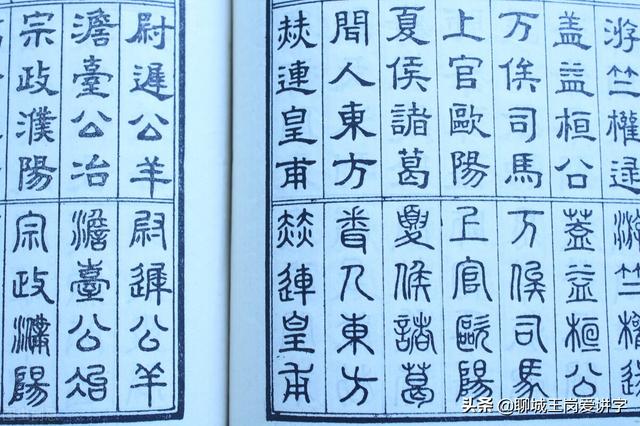 游竺權逯
蓋益桓公
万俟司馬
上官歐陽
夏侯諸葛
聞人東方
赫連皇甫
游竺權逯
蓋益桓公
万俟司馬
上官歐陽
夏侯諸葛
聞人東方
赫連皇甫
尉遲公羊
澹臺公冶
宗政濮陽
尉遲公羊
澹臺公冶
宗政濮陽
头条 @聊城王岗爱讲字